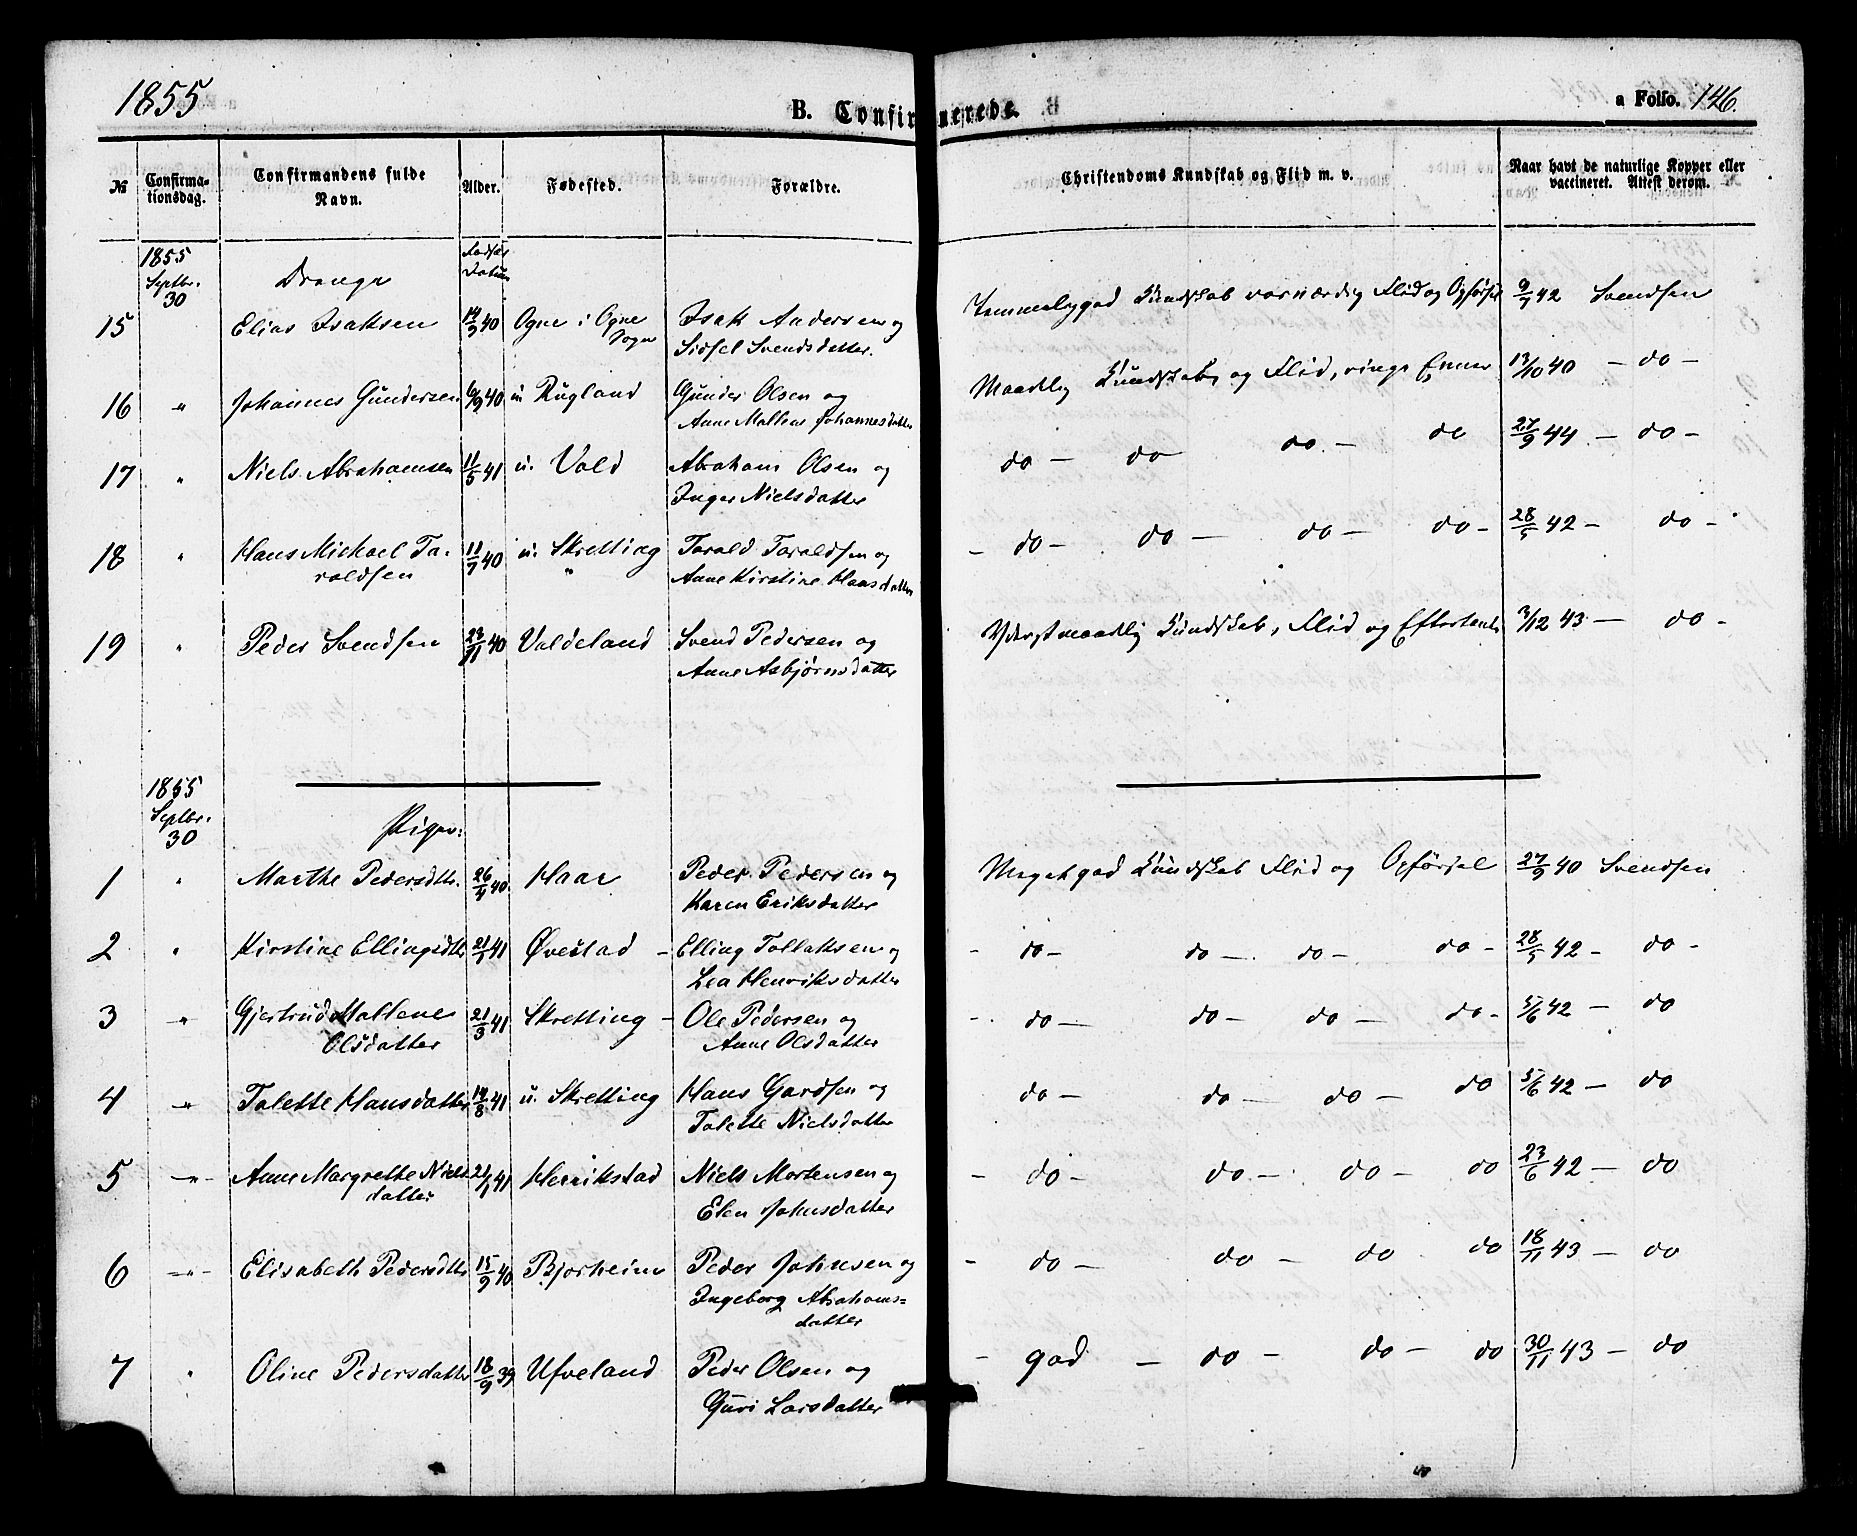 1855
B. Confirmerede.
a Folio. 146.
№ Confirma-tionsdag. Confirmandens fulde Navn. Alder. Fødested. Forældre. Christendoms Kundskab og Flid m. v. Naar havt de naturlige Kopper eller vaccineret. Attest derom.
1855
Septbr. 30
Drenge
15 Elias Isaksen 14/9 40 Ogne i Ogne Sogn Isak Andersen og Temmelig god Kundskab Flid og Opførsel 9/7 42 Svendsen
Sidsel Svendsdatter.
16 " Johannes Gundersen 6/9 40 u Rugland Gunder Olsen og Maadelig Kundskab og Flid, ringe Evner 13/10 40 - do -
Anne Mallene Johannesdatter
17 " Niels Abrahamsen 11/5 41 u. Vold Abraham Olsen og do - do do. - do 27/9 44 - do -
Inger Nielsdatter
18 " Hans Michael Ta- 11/7 40 u. Skretting Tarald Taraldsen og - do - do - do - do - 28/5 42 - do -
raldsen Anne Kirstine Hansdatter
19 " Peder Svendsen 23/11 40 Valdeland Svend Pedersen og Yderst maadelig Kundskab, Flid og Eftertanke 3/12 43 - do -
Anne Asbjørnsdatter
1855
Septbr. 30
Piger:
1 " Marthe Pedersdtr. 26/4 40. Haar Peder Pedersen og Meget god Kundskab Flid og Opførsel 27/9 40 Svendsen
Karen Eriksdatter
2 " Kirstine Ellingsdtr 21/1 41 Øvestad - Elling Tollaksen og - do - do - do - do - 28/5 42 - do -
Lea Henriksdatter
3 " Gjertrud Mallene 21/3 41 Skretting - Ole Pedersen og - do - do - do - do - 5/6 42 - do
Olsdatter Anne Olsdatter
4 " Talette Hansdatter 14/8 41 u. Skretting Hans Gardsen og do - do - do - do 5/6 42 - do
Talette Nielsdatter
5 -"- Anne Margrethe Niels 21/1 41 Henrikstad Niels Mortensen og - do - do - do - do 23/6 42 - do
datter Elen Johnsdatter
6 -"- Elisabeth Pedersdtr 15/9 40 Bjorheim Peder Johnsen og - do - do - do do 18/11 43 - do
Ingeborg Abrahams=
datter
7 " Oline Pedersdatter 18/9 39 Ufveland Peder Olsen og - god - do - do - do 30/11 43 - do
Guri Larsdatter